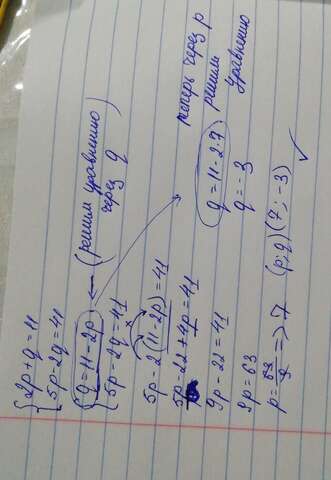 2p+q=11
5p-2q=41
q=11-2p ← (решим уравнению через q)
5p-2q=41
5p-2(11-2p)=41
5p-22+4p=41
9p-22=41
9p=63
p=63/9=>7
теперь через p
решим
уравнению
q=11-2·7
q=-3
(p;q)(7;-3)
✓